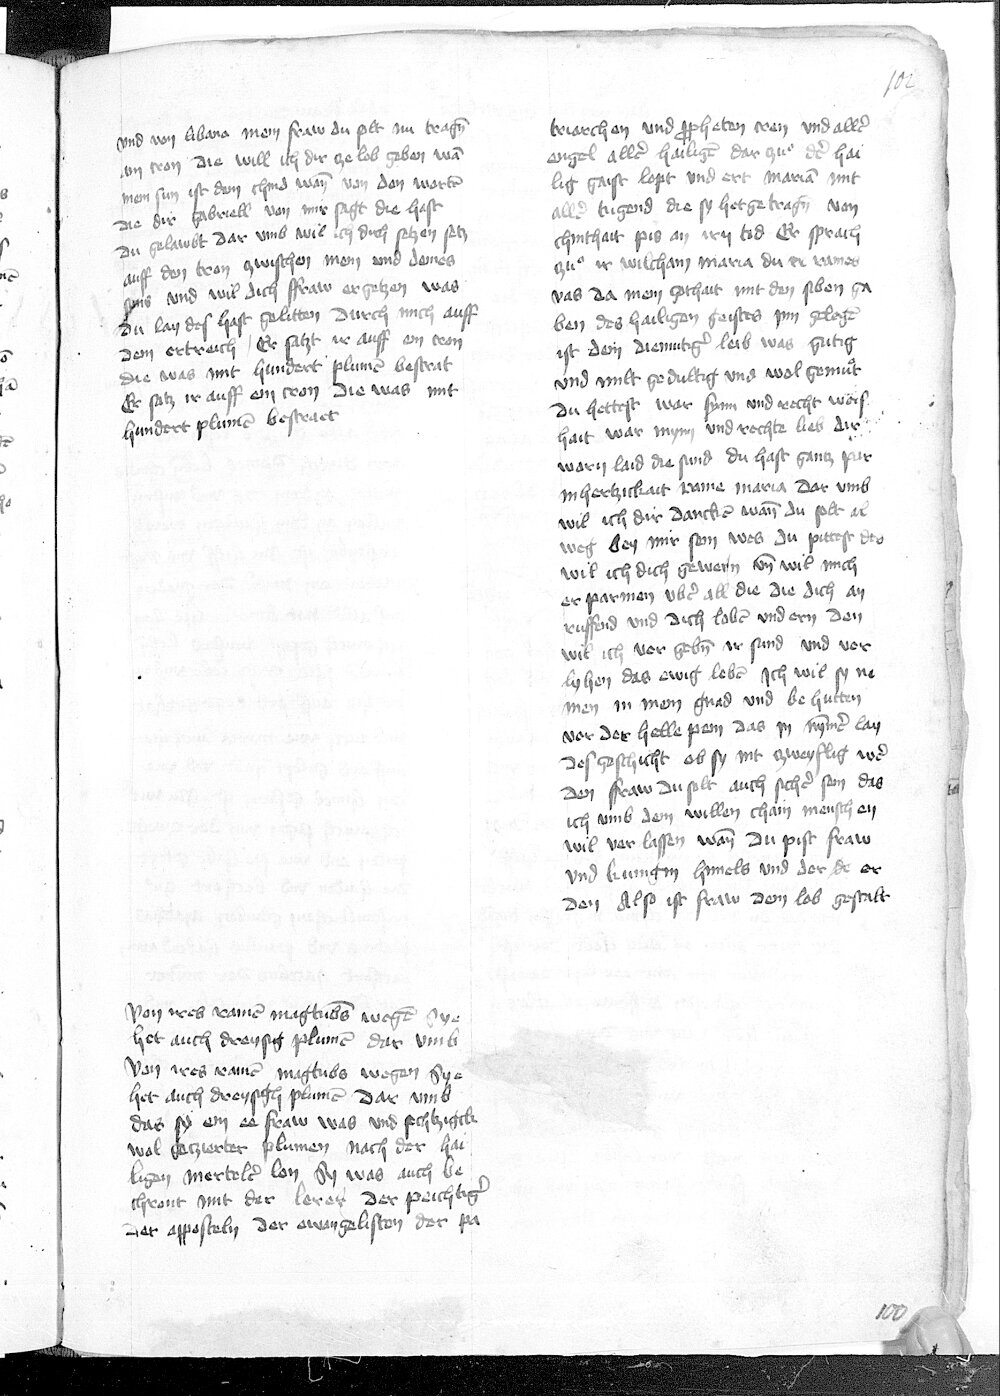 102
und von libano mein fraw du solt nu tragn̄
ain cron die will ich dir ze lob geben wā
mein sun ist dein chind wan̄ von den wortē
die dir gabriell von mir sagt die hast
du gelawbt dar umb wil ich dich setzen setz
auff den tron zwischen mein und deines
suns und wil dich ffraw ergetzen was
du laydes hast gelitten durch mich auff
dem ertreich / Er satzt ir auff ein cron
die was mit hundert plumē bestrat
Er satz ir auff ein cron die was mit
hundert plumē bestraet
Von ires rainē magtubs wegē Sye
het auch dreysig plumē dar umb
Von ires rainē magtubs wegen Sye
het auch dreysigh plumē dar umb
das sy ein ee fraw was und sechtzigck
wol geczierter plumen nach der hai
ligen mertelē lon Sy was auch be
chront mit der lerer der peichtigē
der apposteln der ewangelisten der pa
triarchen und propheten cren und allē
engel allē hailigē dar zuͦ dē hai
lig gaist lopt und ert mariā mit
allē tugend die sy het getragn̄ von
chinthait pis an irn tod Er sprach
zuͦ ir wilcham maria du raines
vas da mein gothait mit den siben ga
ben des hailigen geistes inn gelegē
ist dein diemutigē leib was gutig
und milt gedultig und wol gemuͤt
du hettest war synn und recht weis
hait war mynn und rechte lieb dir
warn laid die sund du hast gantz par
mhertzickait raine maria dar umb
wil ich dir danckē wan̄ du solt al
weg bey mir sein wes du pittest des
wil ich dich gewern un̄ wil mich
er parmen ubē all die die dich an
ruffend und dich lobē und ern den
wil ich ver gebn̄ ir sund und ver
lyhen das ewig lebē Ich wil sy ne
men in mein gnad und be hutten
vor der helle pein das in nymē lay
des geschicht ob sy nit zweyflig wē
den ffraw du solt auch sichē sein das
ich umb dein willen chain menschen
wil ver lassen wan̄ du pist fraw
und kunigin himels und der er
den Also ist fraw dein lob gestalt
100